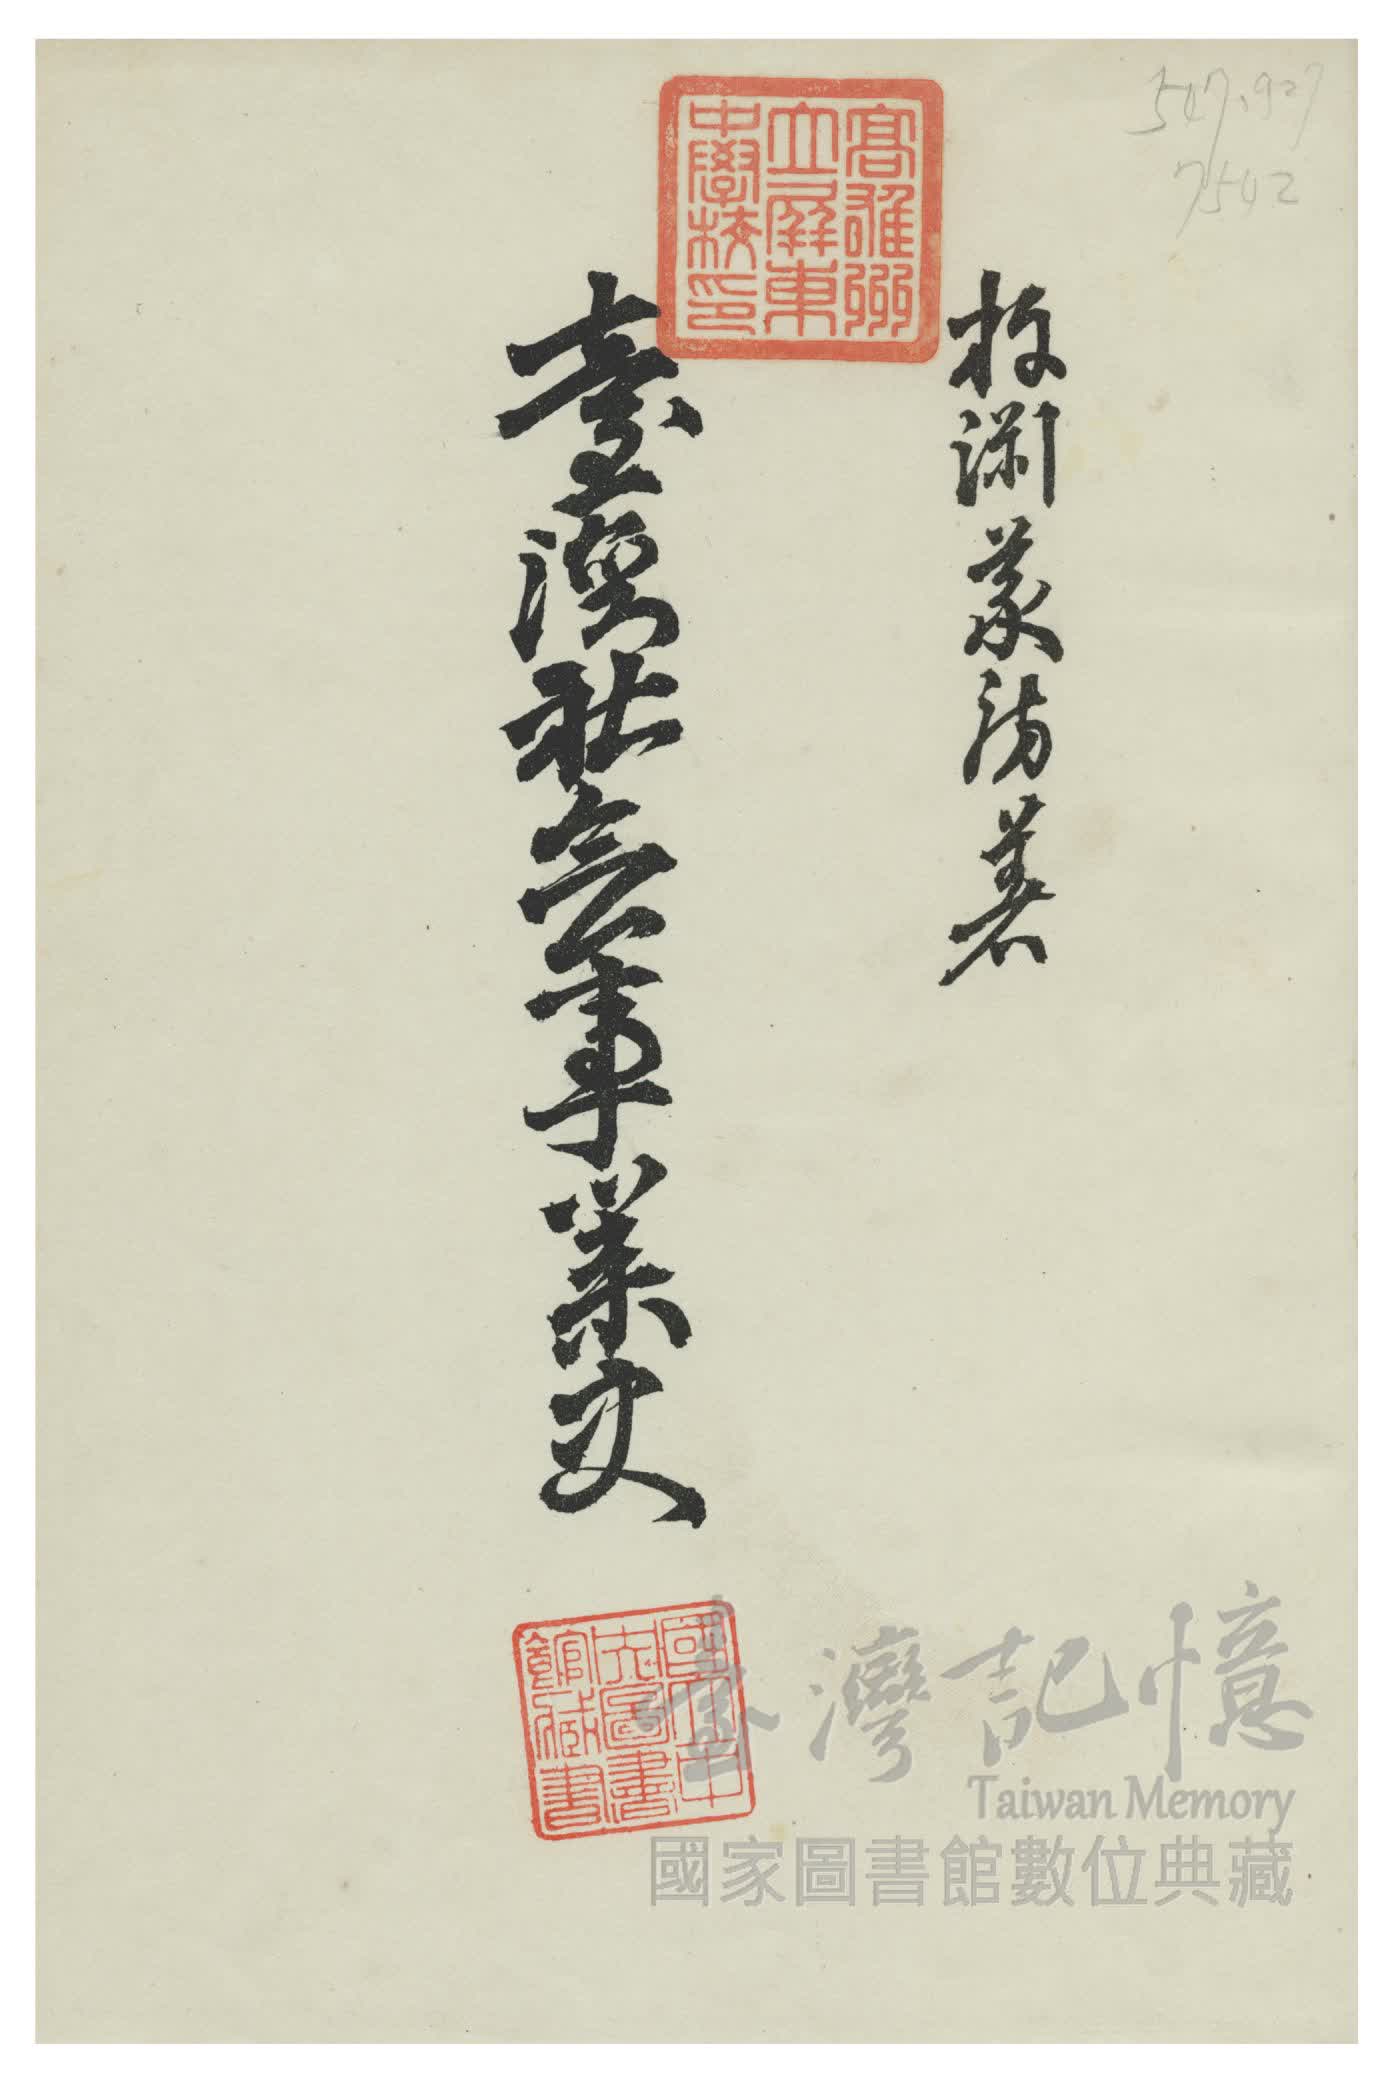 547.927
7542
高雄州
立屏東
中學校印
杵淵義房著
臺灣社會事業史
國立中
央圖書
館藏書
臺灣記憶
Taiwan Memory
國家圖書館數位典藏